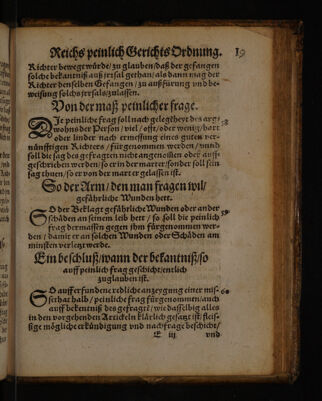 Reichs peinlich Gerichts Ordnung. 19
Richter bewegt würde/ zu glauben/ daß der gefangen
solche bekantniß auß irsal gethan/ als dann mag der
Richter den selben Gefangen/ zu außfürung und be-
weisung solchs irsals zulassen.
Von der maß peinlicher frage.
DJe peinliche frag soll nach gelegtheyt des arg-
wohns der Person/ viel/ offt/ oder wenig/ hart
oder linder nach ermessung eines guten ver-
nünfftigen Richters/ fürgenommen werden/ unnd
soll die sag des gefragten nicht angenommen oder auff-
geschrieben werden/ so er in der marter/ sonder soll sein
sag thuen/ so er von der marter gelassen ist.
So der Arm/ den man fragen wil/
gefährliche Wunden hett.
SO der Beklagt gefährliche Wunden oder ander
schäden an seinem leib hett/ so soll die peinlich
frag dermassen gegen ihm fürgenommen wer-
den/ damit er an solchen Wunden oder Schäden am
minsten verletzt werde.
Ein beschluß/ wann der bekantniß/ so
auff peinlich frag geschicht/ entlich
zuglauben ist.
SO auff erfundene redliche anzeygung einer mis-
sethat halb/ peinliche frag fürgenommen/ auch
auff bekentniß des gefragtē/ wie dasselbig alles
in den vorgehenden Artickeln klärlich gesetzt ist/ fleis-
sige mögliche erkündigung und nachfrage beschicht/
E iii und